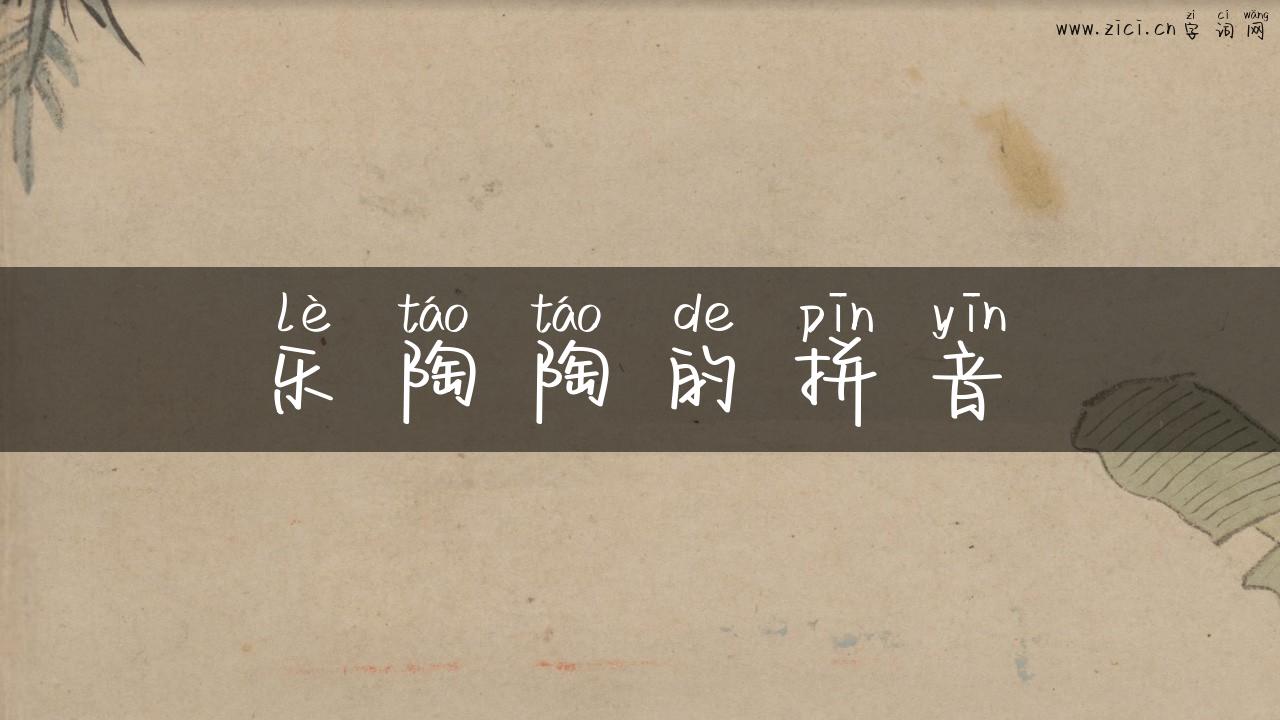 zì cí wǎng
www.zici.cn 字词网
lè táo táo de pīn yīn
乐陶陶的拼音